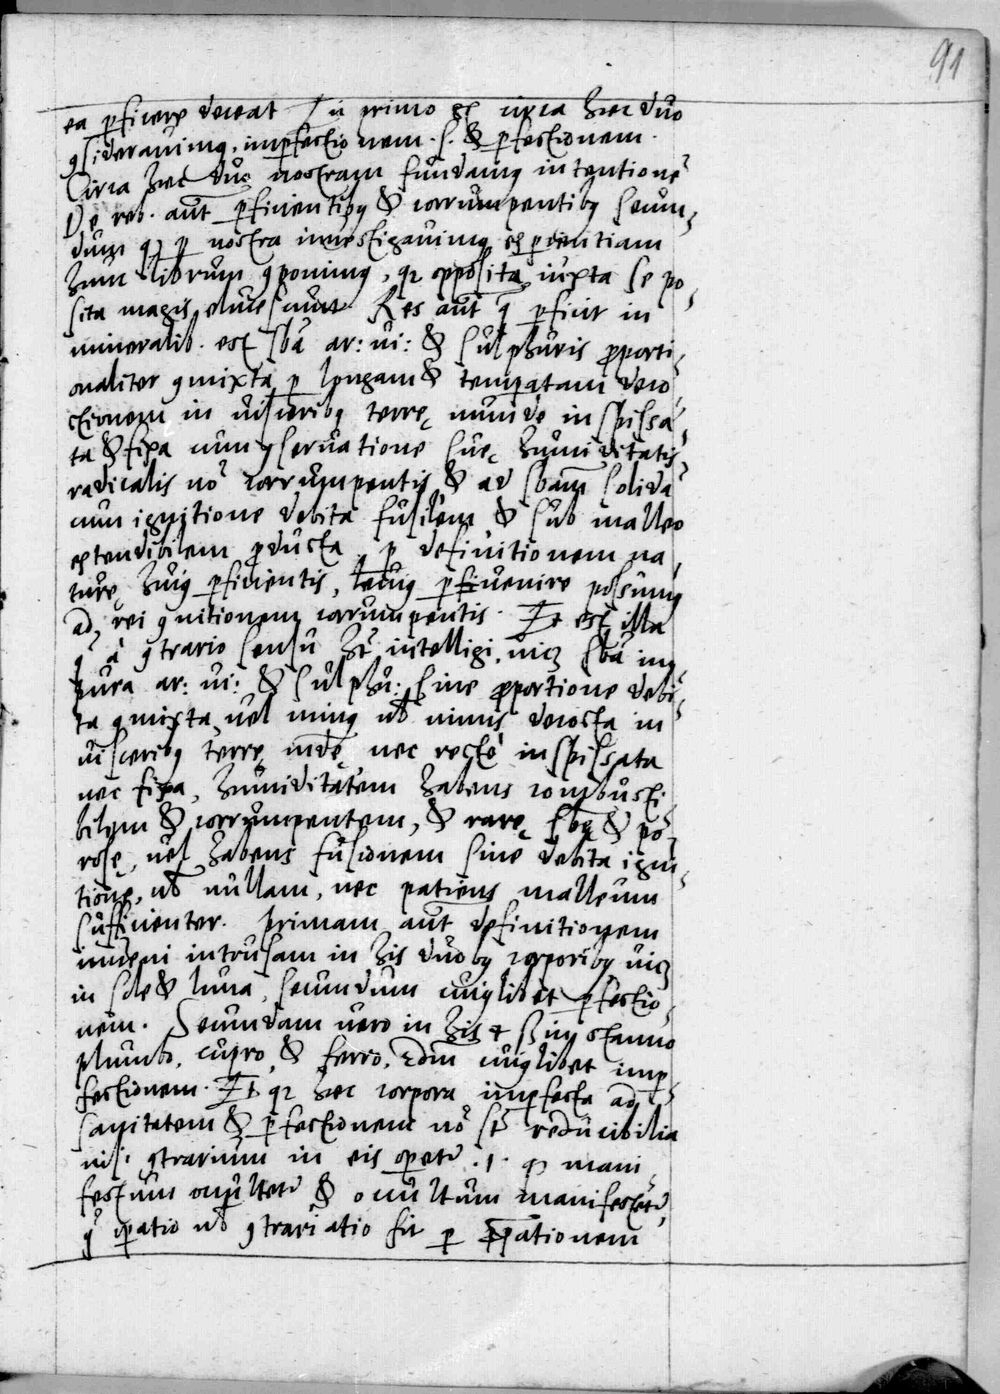 91
ea ꝑficere deceat In primo em̃ circa hec duo
ꝯsiderauimꝰ, imperfectionem .s. & ꝑfectionem.
Circa hec duo nostram fundamꝰ intentionẽ
De reb. aut̃ ꝑficientibꝰ & corrumpentibꝰ secun⸗
dum qꝫ ꝑ nostra inuestigauimꝰ experientiam
hunc librum ꝯponimꝰ, qꝛ opposita iuxta se po⸗
sita magis elucescunt Res aut̃ q̃ ꝑficit in
mineralib. est sb̃a ar: ui: & sulphuris ꝓporti⸗
onaliter ꝯmixta ꝑ longam & temꝑatam deco⸗
ctionem in uisceribꝰ terrę munde inspissa⸗
ta & fixa cum ꝯseruatione suę humiditatis
radicalis nõ corrumpentis & ad sb̃am solidã
cum ignitione debita fusilem & sub malleo
extendibilem ꝓducta, ꝑ definitionem na⸗
turę huiꝰ ꝑficientis, ꝑuenire possumꝰ
ad rei ꝯnitionem corrumpentis. Et est illa
q̃ à ꝯtrario sensu ht̃ intelligi, uicꝫ sb̃a im⸗
pura ar: ui: & sulphu: sine ꝓportione debi⸗
ta ꝯmixta, uel minꝰ ul̃ nimis decocta in
uisceribꝰ terrę nec rectè inspissata
nec fixa, humiditatem habens combusti⸗
bilem & corrumpentem, & rarę sb̃ę & po⸗
rosę, uel habens fusionem sine debita igni⸗
tione, ul̃ nullam, nec patiens malleum
sufficienter. Primam aut̃ definitionem
inueni intrusam in his duobꝰ corporibꝰ uicꝫ
in sole & luna, secundum cuiꝰlibet ꝑfectio⸗
nem. Secundam uero in his 4 stanno
plumbo, cupro, & ferro, cuiꝰlibet imꝑ⸗
fectionem. Et qꝛ hec corpora imꝑfecta ad
sanitatem & ꝑfectionem nõ st̃ reducibilia
nisi ꝯtrarium in eis oꝑet᷑ .i. qꝫ mani⸗
festum occultet᷑ & occultum manifestet᷑,
q̃ oꝑatio ul̃ ꝯtrariatio fit ꝑ p̃ꝑationem